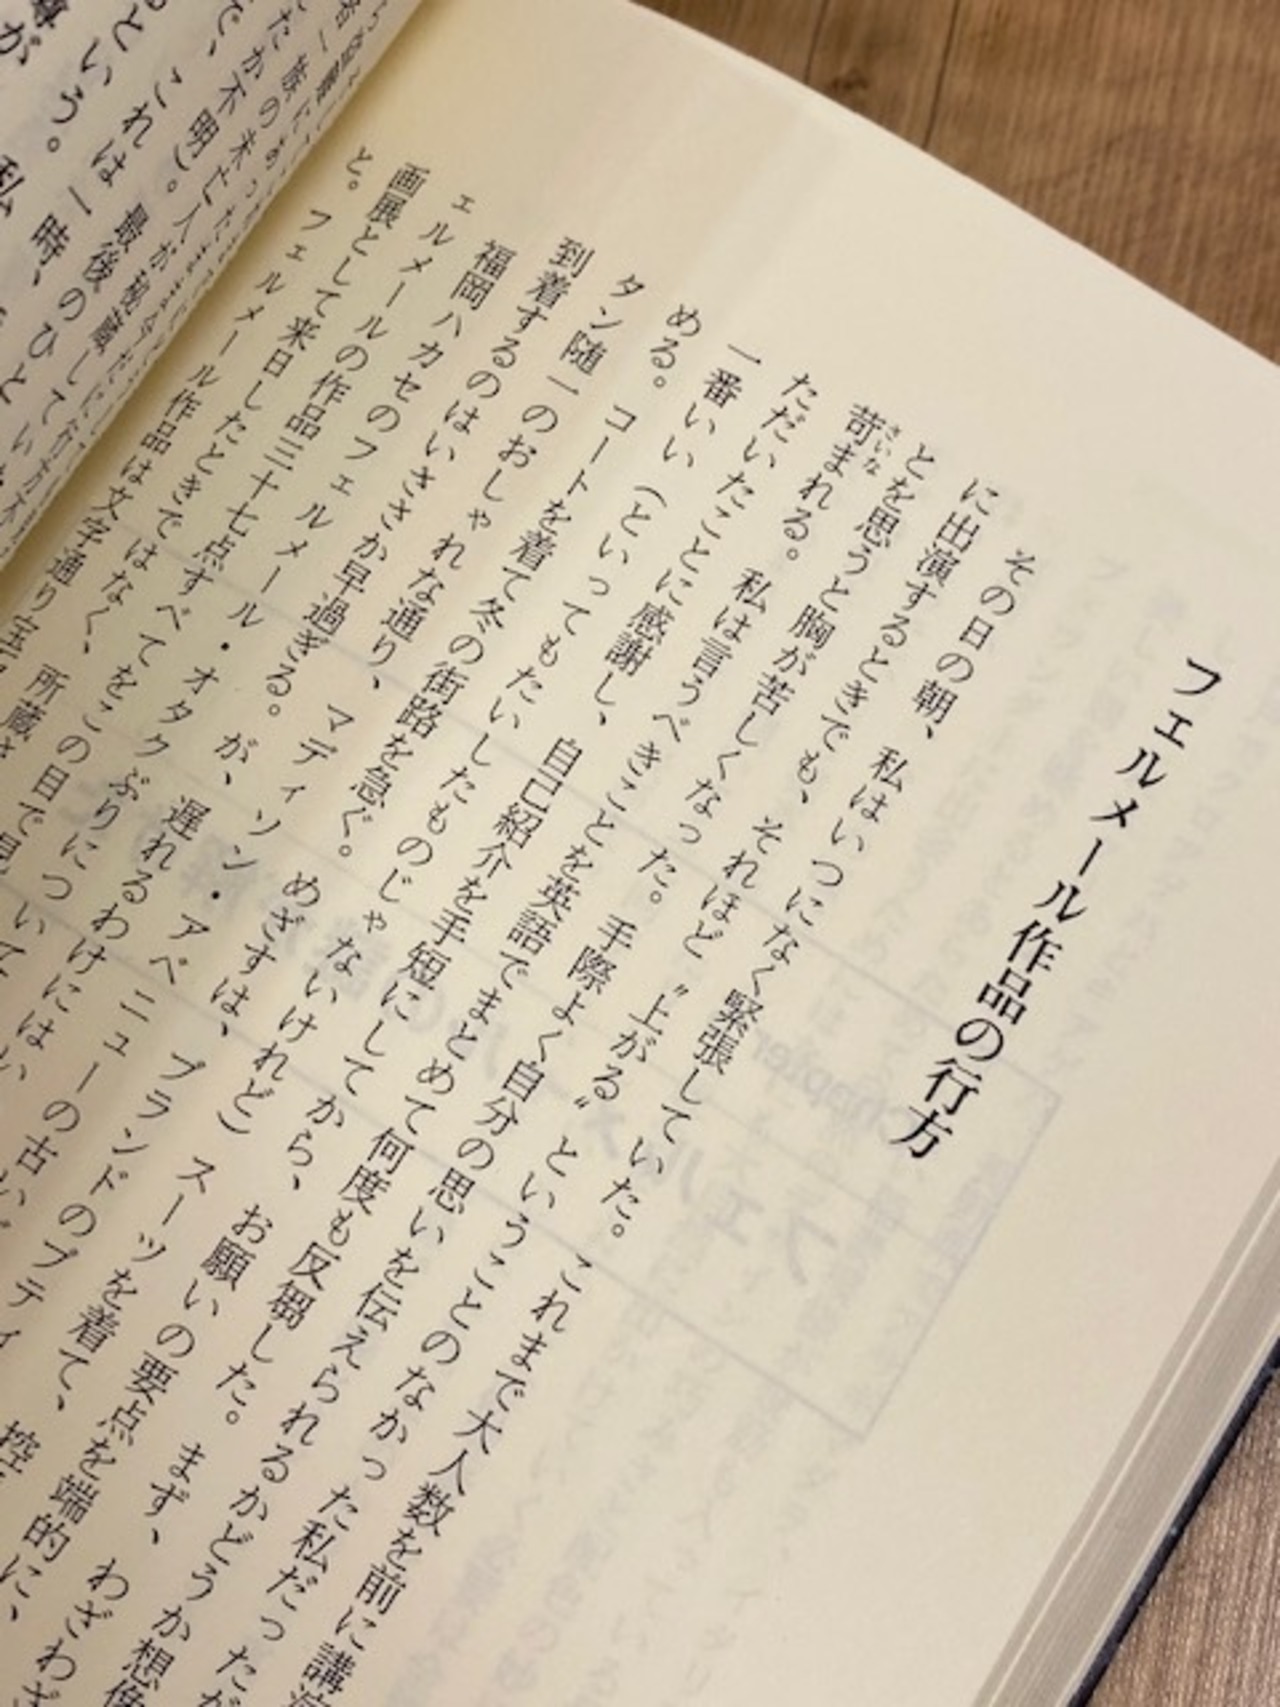 フェルメール作品の行方
その日の朝、私はいつになく緊張していた。これまで大人数を前に講演
に出演するときでも、それほど〝上がる〟ということのなかった私だった
とを思うと胸が苦しくなった。手際よく自分の思いを伝えられるかどうか想像
苛まれる。私は言うべきことを英語でまとめて何度も反芻した。まず、わざわざ
ただいたことに感謝し、自己紹介を手短にしてから、お願いの要点を端的に、
一番いい（といってもたいしたものじゃないけれど）スーツを着て、控
める。コートを着て冬の街路を急ぐ。めざすは、ブランドのブティ
タン随一のおしゃれな通り、マディソン・アベニューの古い
到着するのはいささか早過ぎる。が、遅れるわけにはい
福岡ハカセのフェルメール・オタクぶりについて
ェルメールの作品三十七点すべてをこの目で見
画展として来日したときではなく、所蔵さ
と。フェルメール作品は文字通り宝
で、これは一時、
という。私